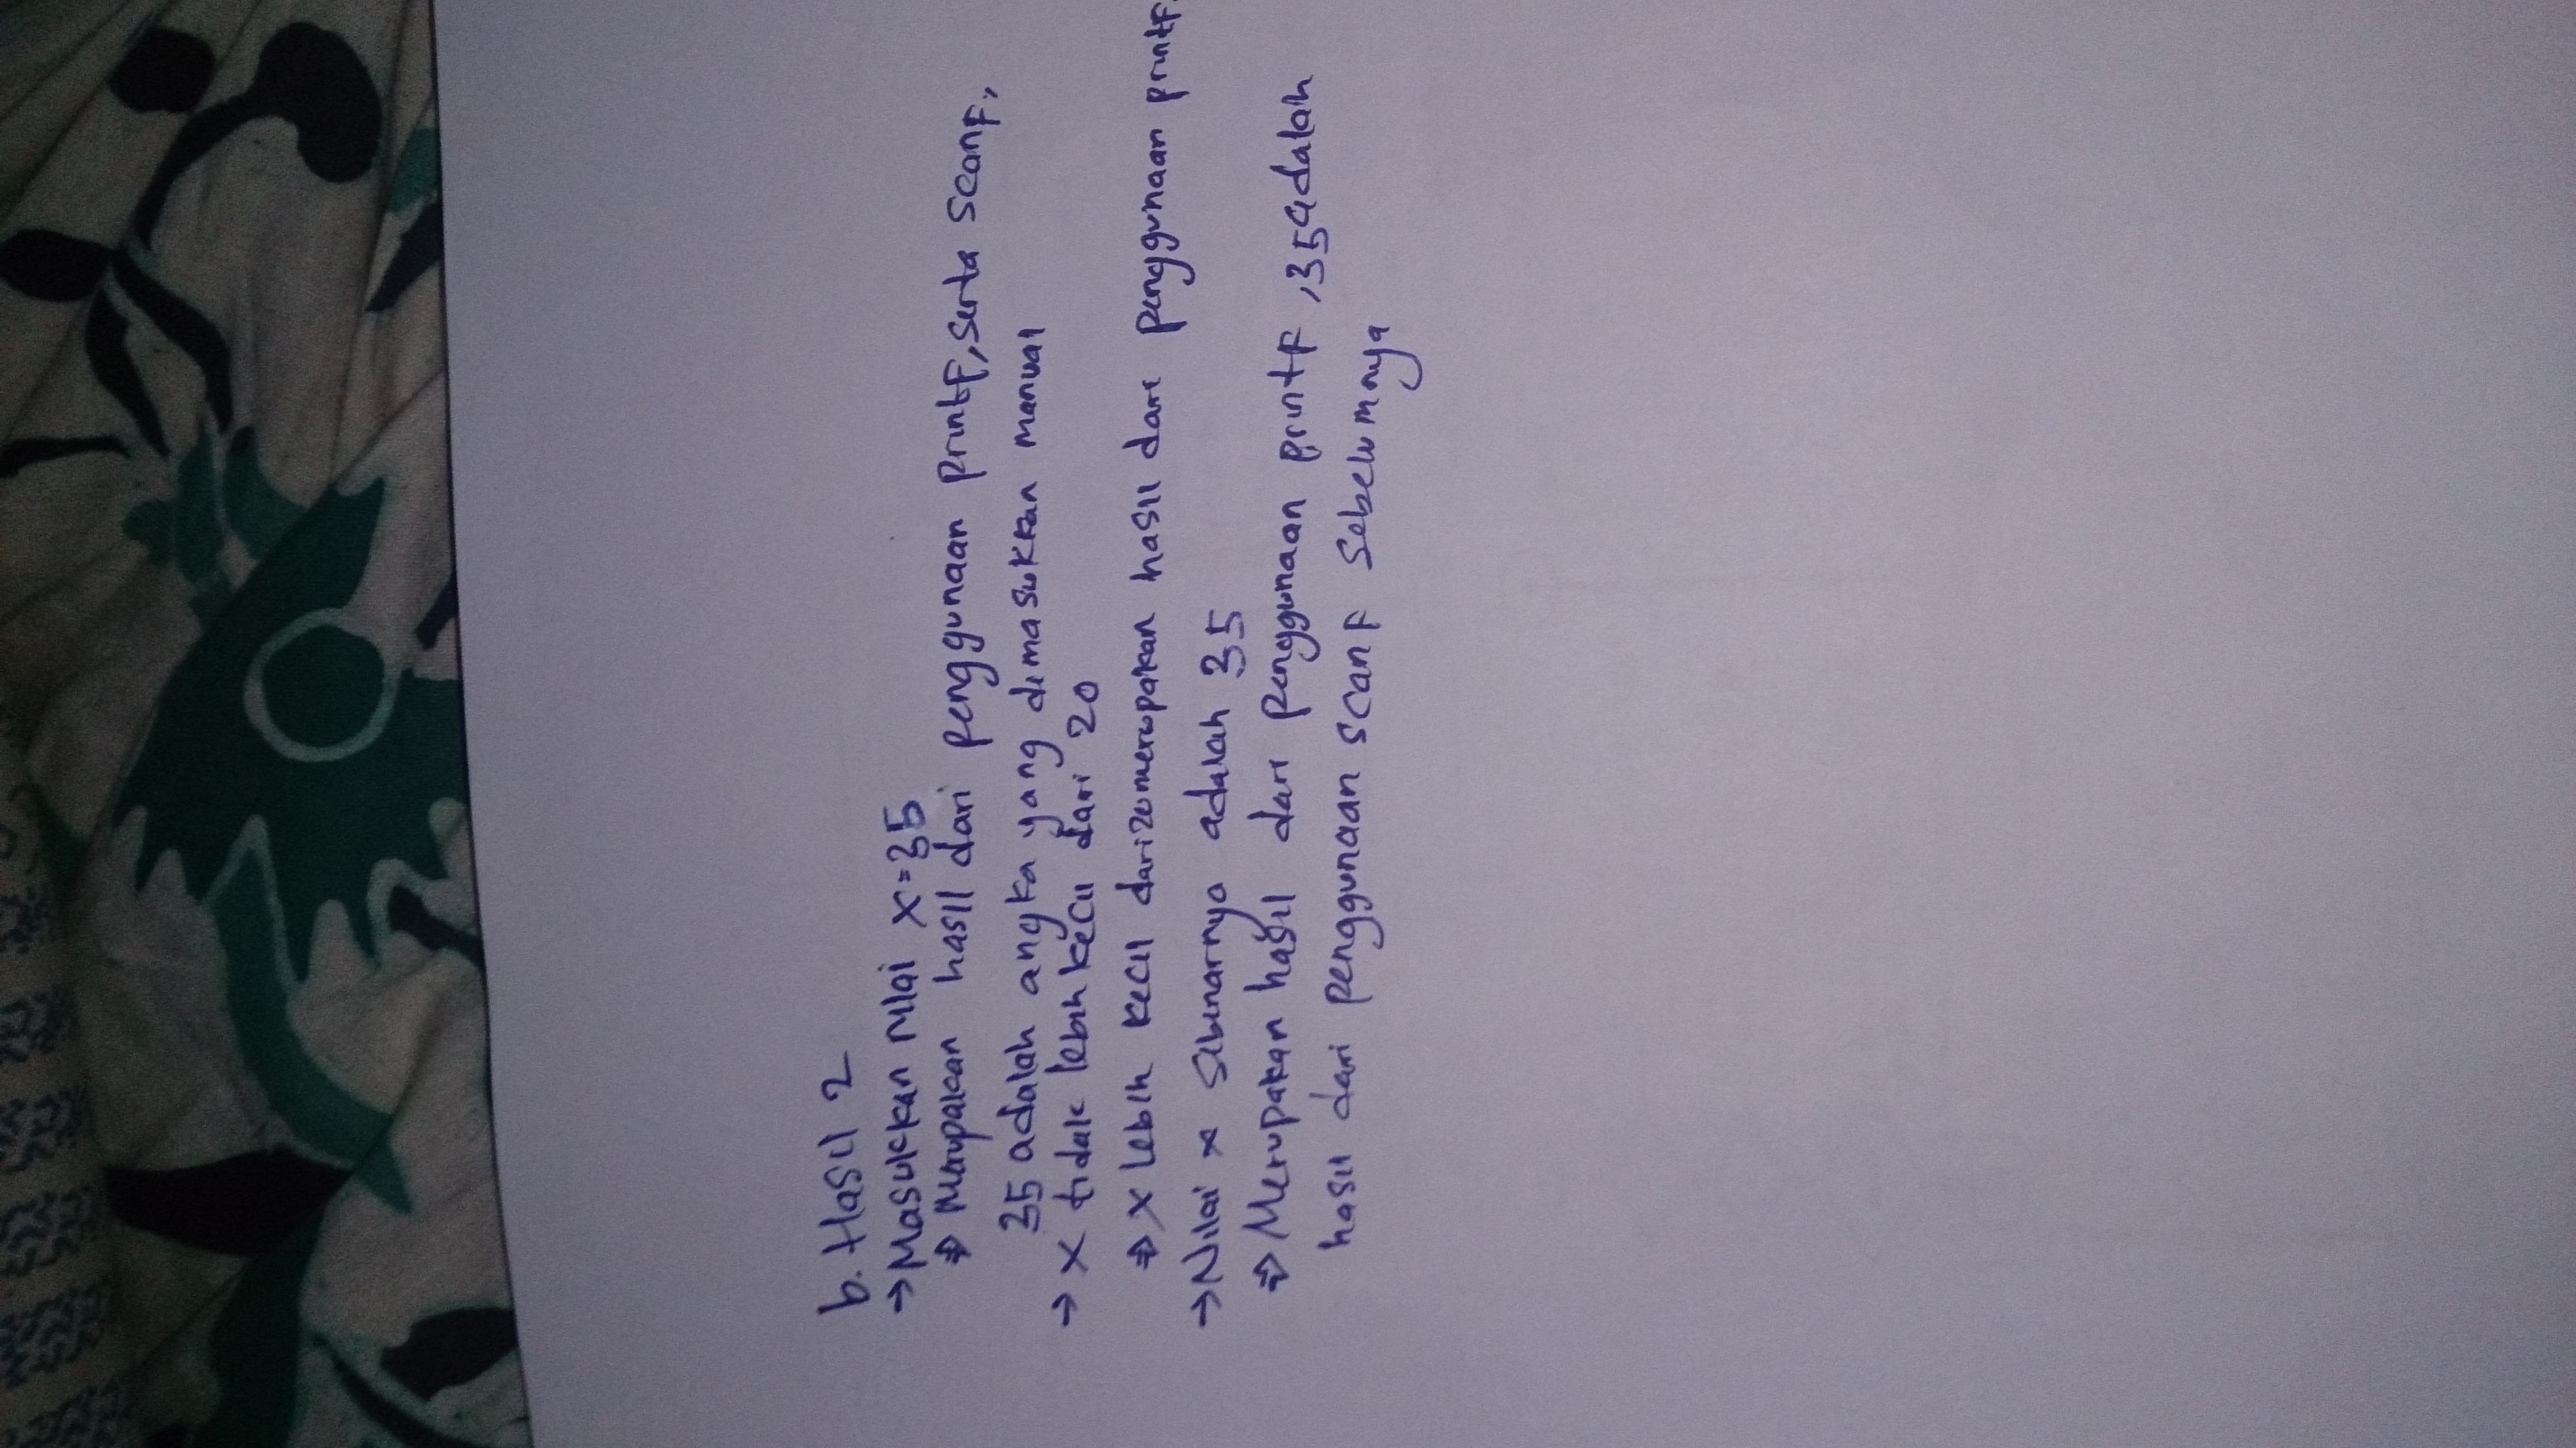 b. Hasil 2
→ Masukkan nilai x = 35
⇒ Merupakan hasil dari penggunaan printf, serta scanf,
35 adalah angka yang dimasukkan manual
→ x tidak lebih kecil dari 20
⇒ x lebih kecil dari 20 merupakan hasil dari penggunaan printf.
→ Nilai x sebenarnya adalah 35
⇒ Merupakan hasil dari penggunaan printf, 35 adalah
hasil dari penggunaan scanf sebelumnya